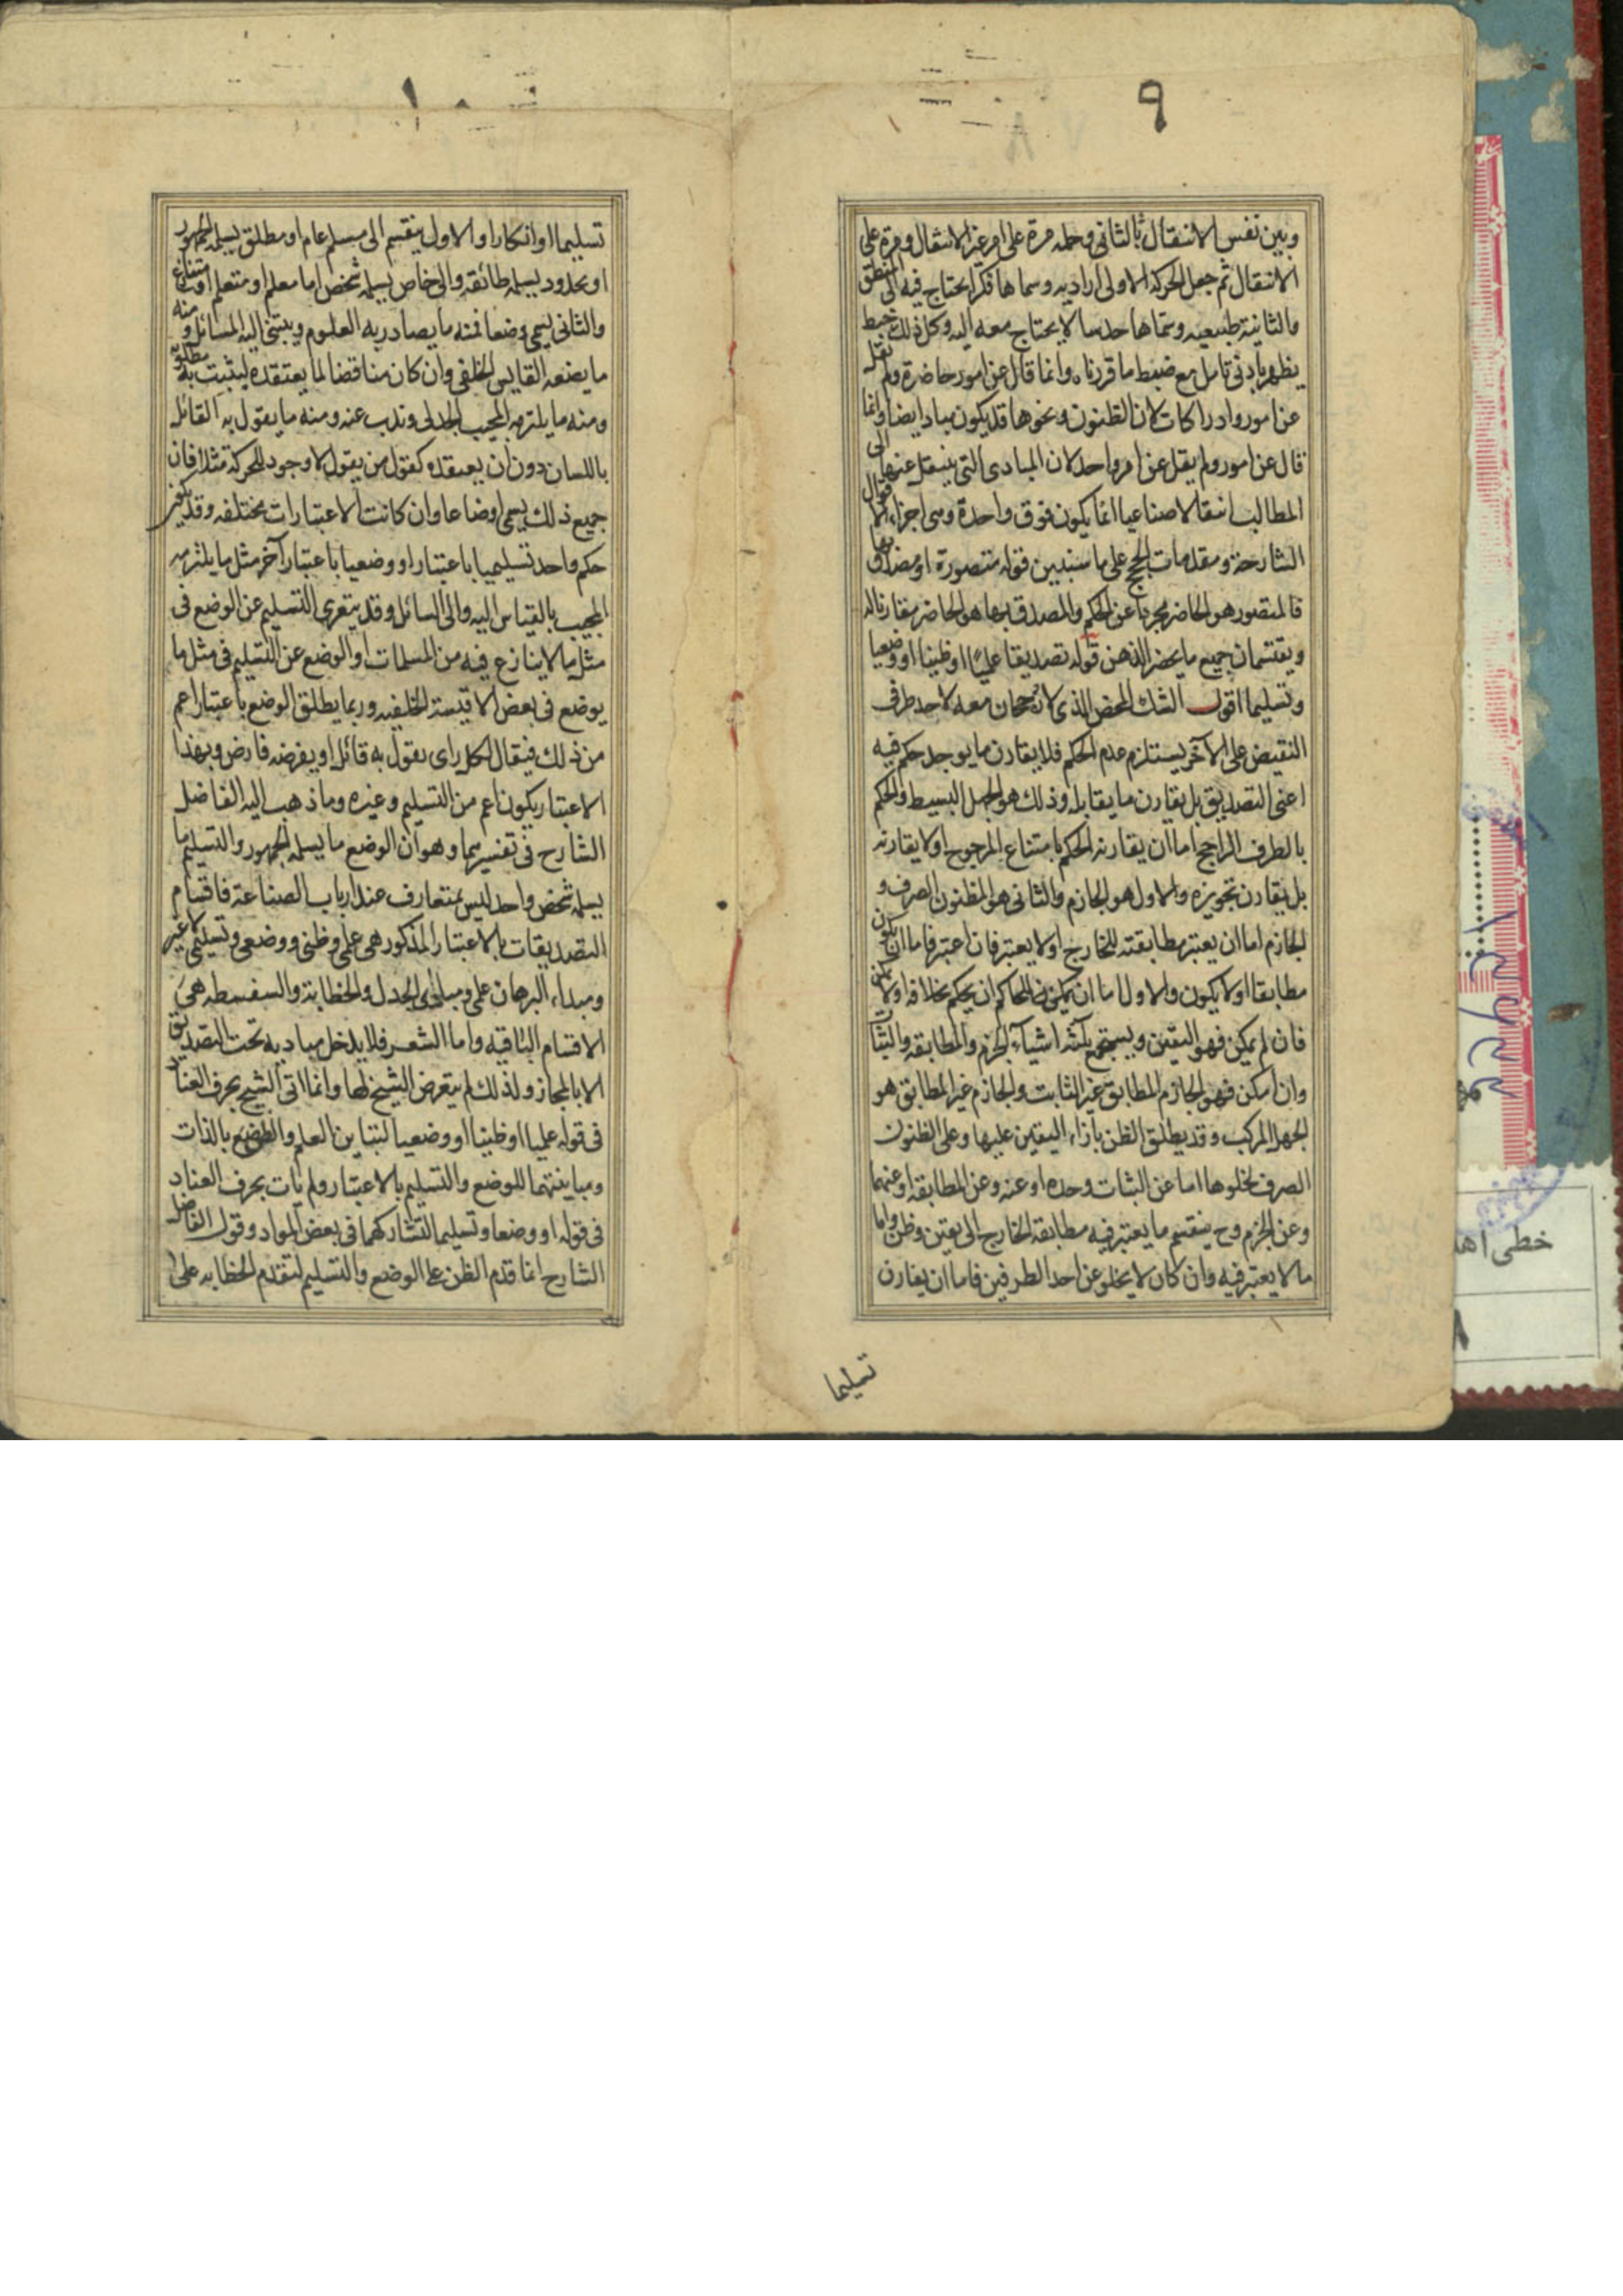 ٩
وبين نفس الانتقال بالثانى وحمله مرة على امر غير الانتقال ومرة على
الانتقال ثم جعل الحركة الاولى اراديه وسماها فكرا يحتاج فيه الى المنطق
والثانية طبيعيه وسماها حدسا لا يحتاج معه اليه وكل ذلك خبط
يظهر بادنى تامل مع ضبط ما قررناه وانما قال عن امور حاضرة ولم يقل
عن امور وادراكات لان الظنون ونحوها قد يكون مباد ايضا وانما
قال عن امور ولم يقل عن امر واحد لان المبادى التى ينتقل عنها الى
المطالب انتقالا صناعيا انما يكون فوق واحدة وهى اجزاء الاقوال
الشارحة ومقدمات الحجج على ما سنبين قوله متصورة او مصدق بها
فالمتصور هو الحاضر مجردا عن الحكم والمصدق بها هو الحاضر مقارنا له
ويقتسمان جميع ما يحضر الذهن قوله تصديقا علميا او ظنيا او وضعيا
وتسليما اقول الشك المحض الذى لا رجحان معه لاحد طرفى
النقيض على الآخر يستلزم عدم الحكم فلا يقارن ما يوجد حكم فيه
اعنى التصديق بل يقارن ما يقابله وذلك هو الجهل البسيط والحكم
بالطرف الراجح اما ان يقارنه الحكم بامتناع المرجوح او لا يقارنه
بل يقارن تجويزه والاول هو الجازم والثانى هو المظنون الصرف و
الجازم اما ان يعتبر مطابقته للخارج او لا يعتبر فان اعتبر فاما ان يكون
مطابقا او لا يكون والاول اما ان يمكن للحاكم ان يحكم بخلافه او لا يمكن
فان لم يمكن فهو اليقين ويستجمع ثلثه اشياء الجزم والمطابقه والثبات
وان امكن فهو الجازم المطابق غير الثابت والجازم غير المطابق هو
الجهل المركب وقد يطلق الظن بازاء اليقين عليها وعلى الظنون
الصرف لخلوها اما عن الثبات وحده او عنه وعن المطابقه او عنهما
وعن الجزم وح ينقسم ما يعتبر فيه مطابقة الخارج الى يقين وظن واما
ما لا يعتبر فيه وان كان لا يخلو عن احد الطرفين فاما ان يقارن
تسليما
١٠
تسليما او انكارا والاول ينقسم الى مسلم عام او مطلق يسلمه الجمهور
او محدود يسلمه طائفة والى خاص يسلمه شخص اما معلم او متعلم او متنازع
والثانى يسمى وضعا فمنه ما يصادر به العلوم ويبتنى اليه المسائل ومنه
ما يضعه القايس الخلفى وان كان مناقضا لما يعتقده ليثبت به مطلوبه
ومنه ما يلتزمه المجيب الجدلى ويذب عنه ومنه ما يقول به القائل
باللسان دون ان يعتقده كقول من يقول لا وجود للحركة مثلا فان
جميع ذلك يسمى اوضاعا وان كانت الاعتبارات مختلفه وقد يكون
حكم واحد تسليميا باعتبار او وضعيا باعتبار آخر مثل ما يلتزمه
المجيب بالقياس اليه والى السائل وقد يتعرى التسليم عن الوضع فى
مثل ما لا ينازع فيه من المسلمات او الوضع عن التسليم فى مثل ما
يوضع فى بعض الاقيسة الخلفيه وربما يطلق الوضع باعتبار اعم
من ذلك فيقال لكل راى يقول به قائل او يفرضه فارض وبهذا
الاعتبار يكون اعم من التسليم وغيره وما ذهب اليه الفاضل
الشارح فى تفسيرهما وهو ان الوضع ما يسلمه الجمهور والتسليم ما
يسلمه شخص واحد ليس بمتعارف عند ارباب الصناعة فاقسام
التصديقات بالاعتبار المذكور هى علمى وظنى ووضعى وتسليمى لا غير
ومبداء البرهان علمى ومبادى الجدل والخطابة والسفسطه هى
الاقسام الباقيه واما الشعر فلا يدخل مباديه تحت التصديق
الا بالمجاز ولذلك لم يتعرض الشيخ لها وانما اتى الشيخ بحرف العناد
فى قوله علميا او ظنيا او وضعيا لتباين العلم والظن بالذات
ومباينتهما للوضع والتسليم بالاعتبار ولم يات بحرف العناد
فى قوله او وضعا وتسليما لتشاركهما فى بعض المواد وقول الفاضل
الشارح انما قدم الظن على الوضع والتسليم لتقدم الخطابه على
خطى